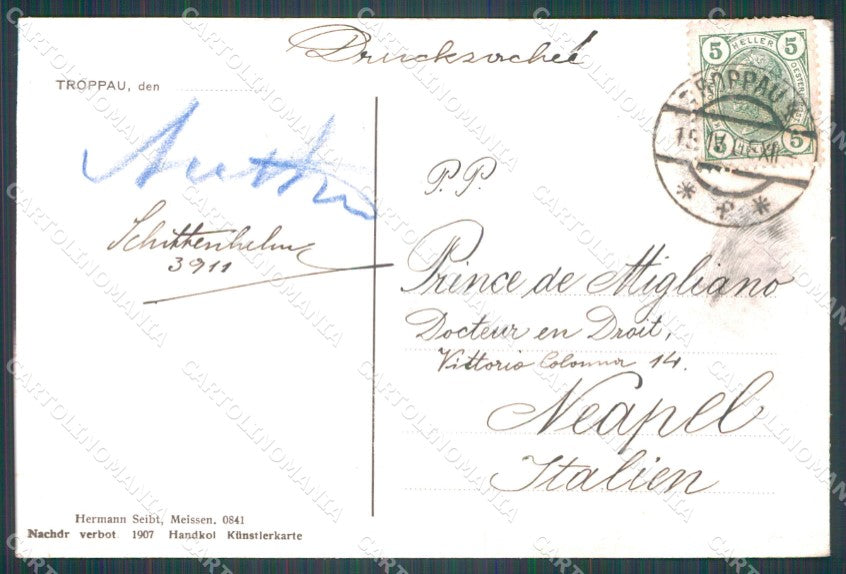 Drucksache
TROPPAU, den
5 HELLER 5
5 5
TROPPAU
P. P.
Schittenhelm
3911
Prince de Migliano
Docteur en Droit,
Vittorio Colonna 14.
Neapel
Italien
Hermann Seibt, Meissen, 0841
Nachdr verbot 1907 Handkol Künstlerkarte
CARTOLINOMANIA